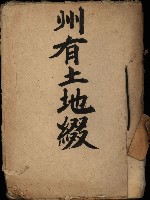 州有土地綴